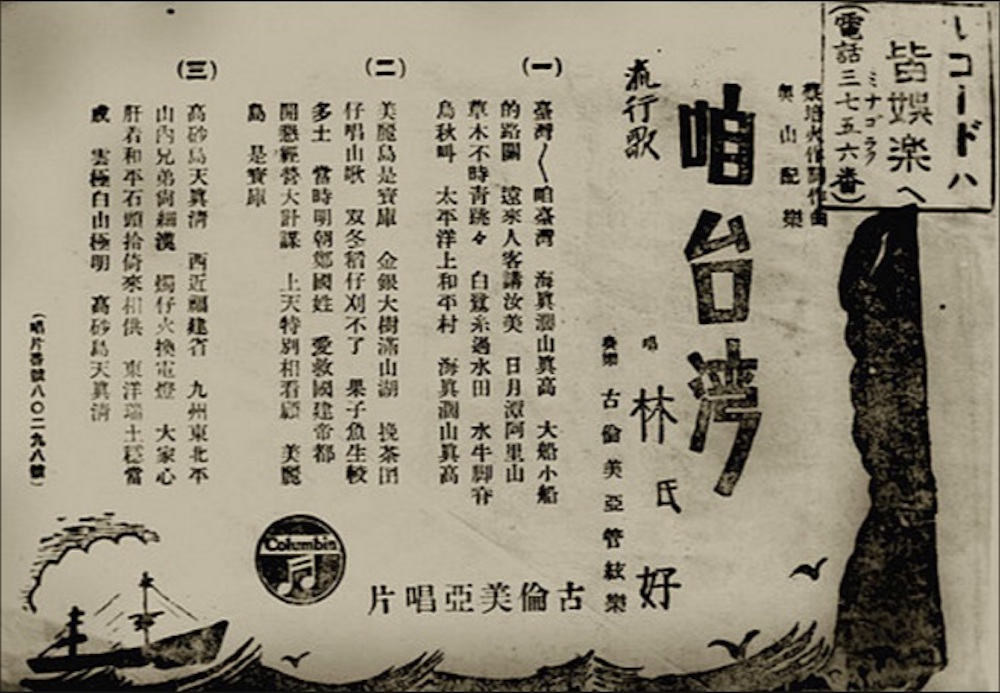 レコードハ
皆娯楽へ
ミナゴラク
(電話三七五六番)
蔡培火作詞作曲
奥山配樂
咱台灣
唱 林氏好
奏樂 古倫美亞管絃樂
流行歌
(一)
臺灣〱咱臺灣 海眞濶山眞高 大船小船
的路關 遠來人客講汝美 日月潭阿里山
草木不時青跳々 白鷺糸過水田 水牛脚脊
烏秋叫 太平洋上和平村 海眞濶山眞高
(二)
美麗島是寶庫 金銀大樹滿山湖 挽茶囝
仔唱山歌 双冬稻仔刈不了 果子魚生較
多土 當時明朝鄭國姓 愛救國建帝都
開懇經營大計謀 上天特別相看顧 美麗
島 是寶庫
(三)
高砂島天眞清 西近福建省 九州東北平
山内兄弟尙細漢 燭仔火換電燈 大家心
肝着和平石頭拾倚來相供 東洋瑞士穩當
成 雲極白山極明 高砂島天眞清
(唱片番號八〇二九八號)
Columbia
古倫美亞唱片